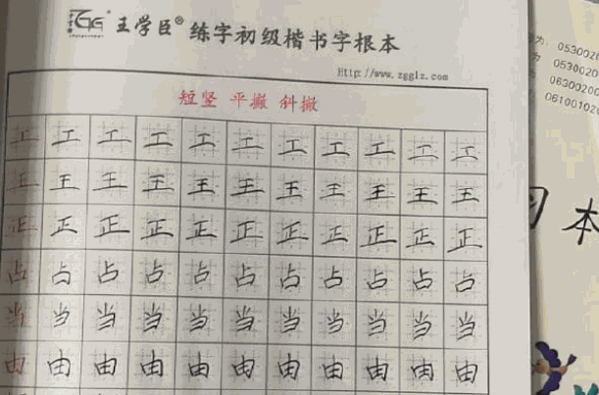 王学臣® 练字初级楷书字根本
Http://www.zgglz.com
短竖 平撇 斜撇
工 工 工 工 工 工 工 工 工 工 工
王 王 王 王 王 王 王 王 王 王 王
正 正 正 正 正 正 正 正 正 正 正
占 占 占 占 占 占 占 占 占 占 占
当 当 当 当 当 当 当 当 当 当 当
由 由 由 由 由 由 由 由 由 由 由
本